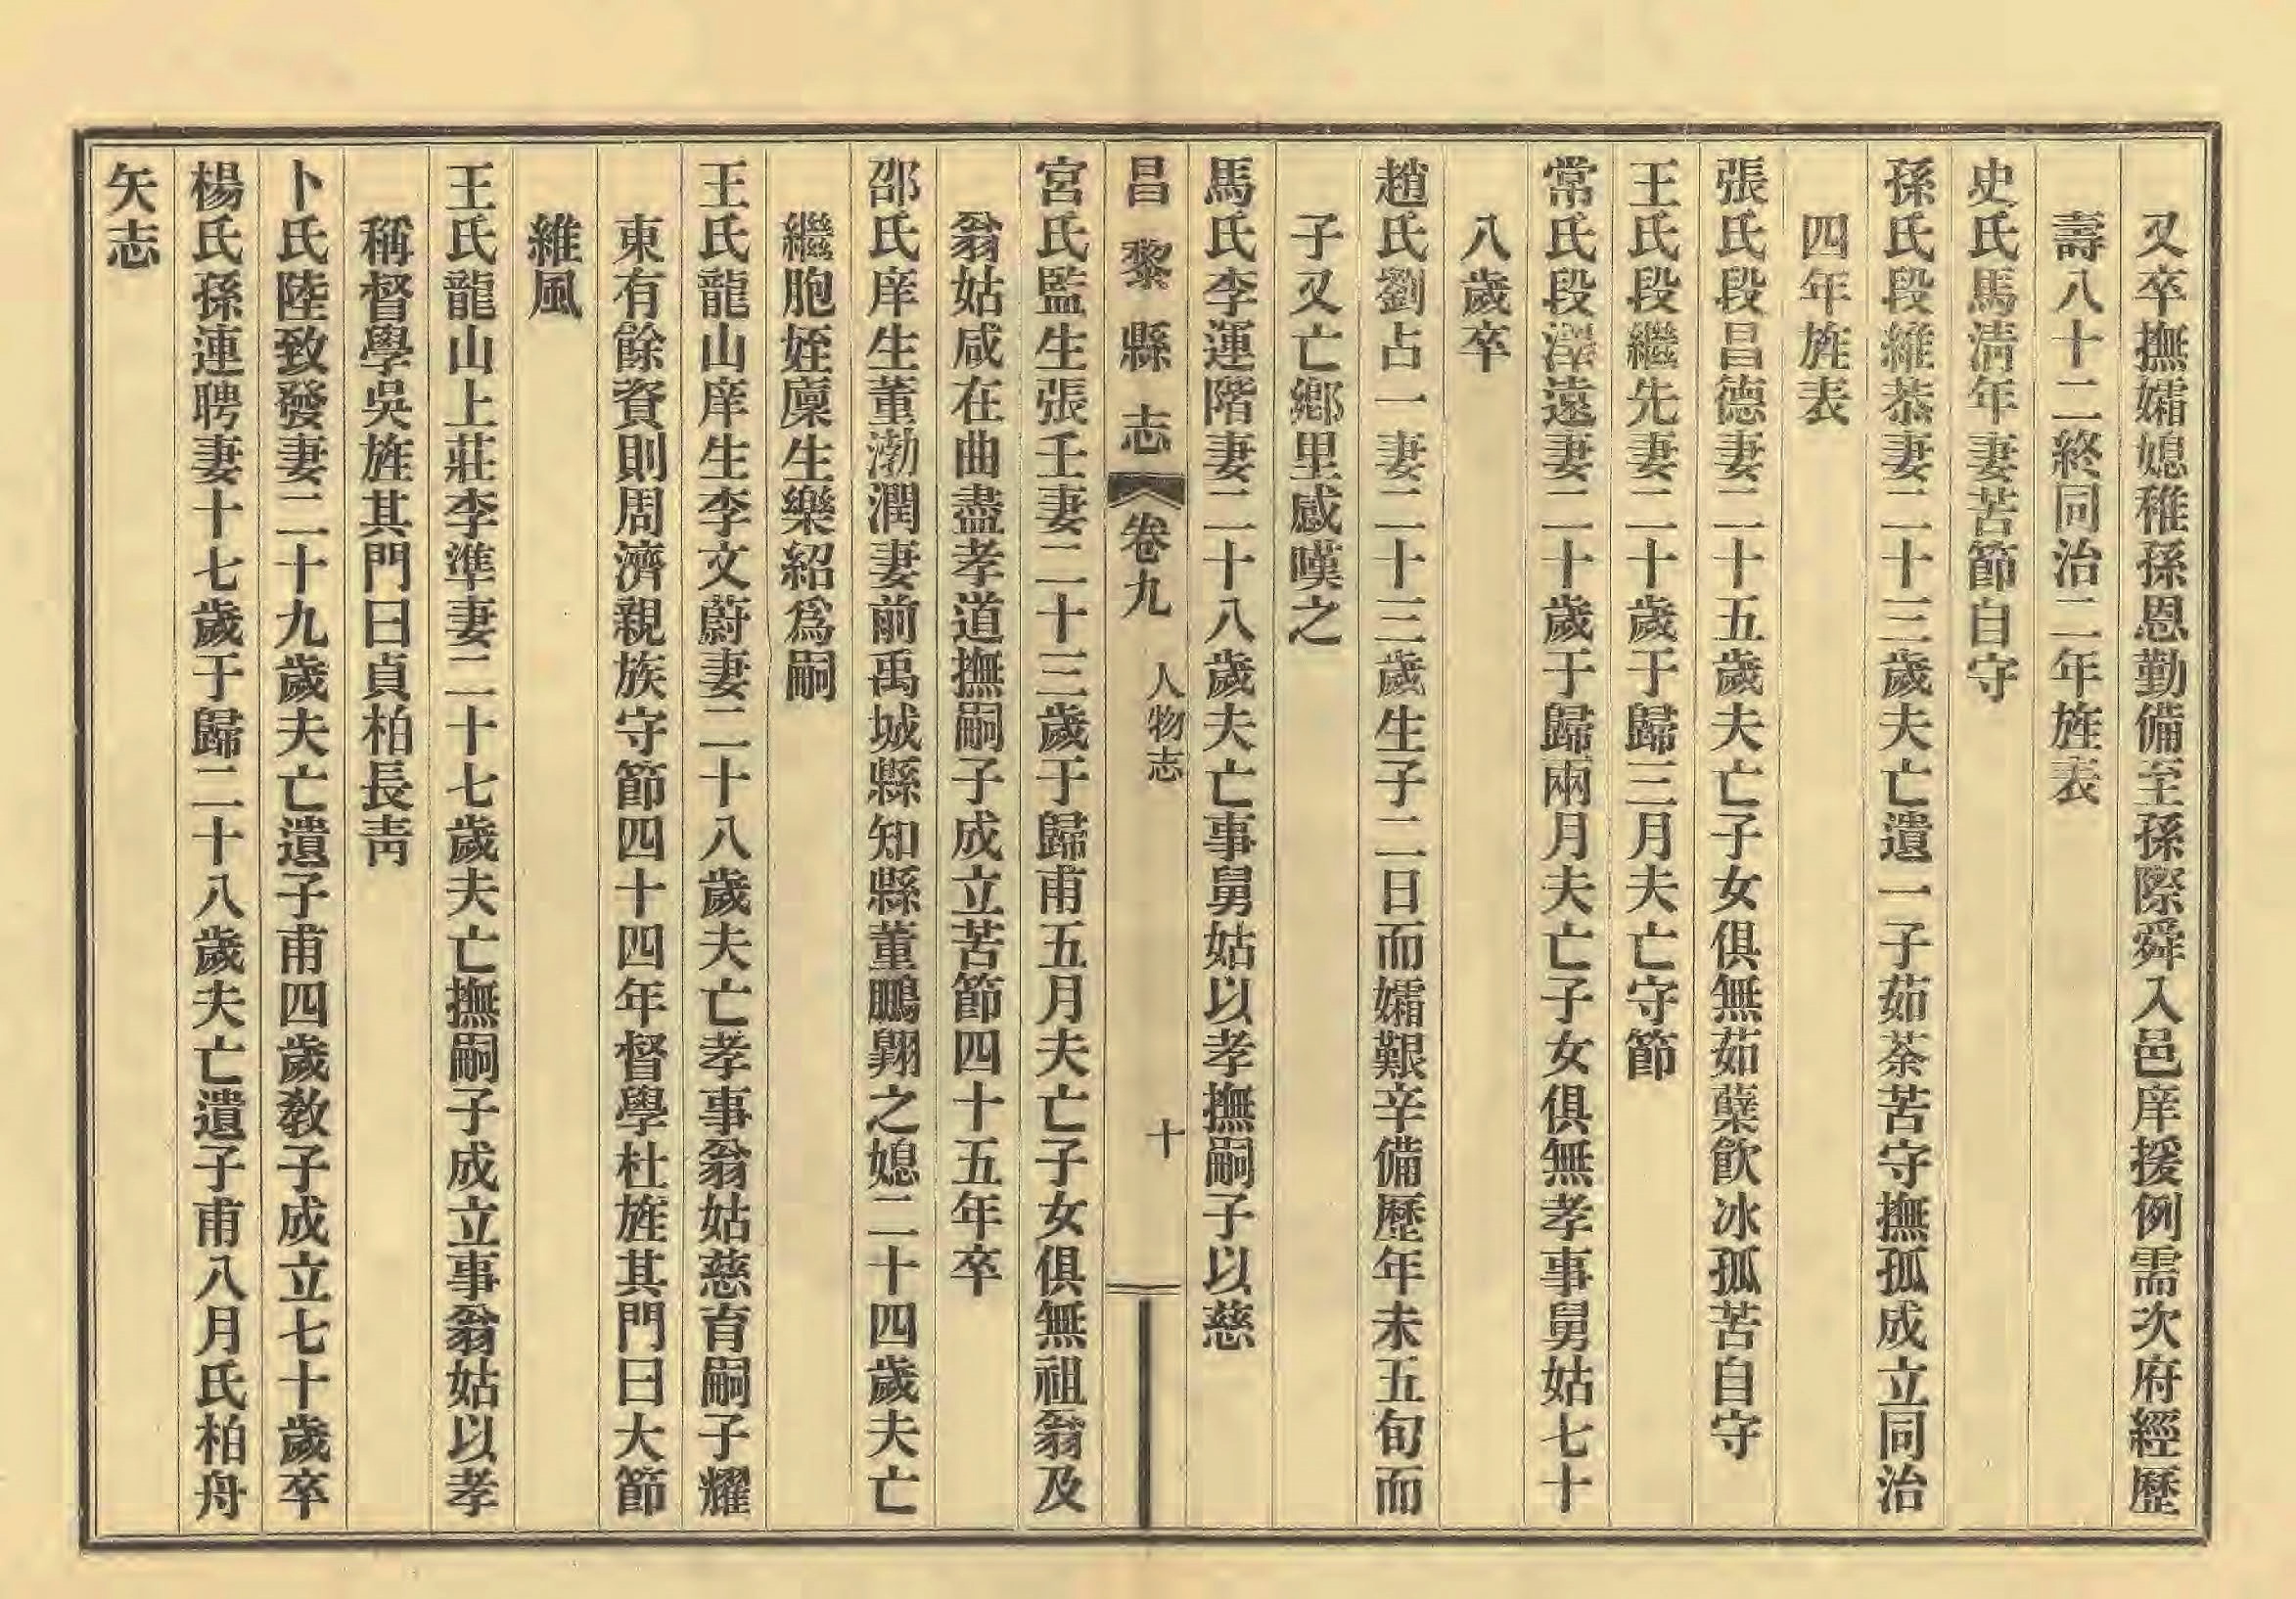 又卒撫孀媳稚孫恩勤備至孫際舜入邑庠援例需次府經歷
壽八十二終同治二年旌表
史氏馬清年妻苦節自守
孫氏段維恭妻二十三歲夫亡遺一子茹荼苦守撫孤成立同治
四年旌表
張氏段昌德妻二十五歲夫亡子女俱無茹蘗飮冰孤苦自守
王氏段繼先妻二十歲于歸三月夫亡守節
常氏段澤遠妻二十歲于歸兩月夫亡子女俱無孝事舅姑七十
八歲卒
趙氏劉占一妻二十三歲生子二日而孀艱辛備歷年未五旬而
子又亡鄕里感嘆之
馬氏李運階妻二十八歲夫亡事舅姑以孝撫嗣子以慈
昌黎縣志 卷九 人物志 十
宮氏監生張壬妻二十三歲于歸甫五月夫亡子女俱無祖翁及
翁姑咸在曲盡孝道撫嗣子成立苦節四十五年卒
邵氏庠生董渤潤妻前禹城縣知縣董鵬翺之媳二十四歲夫亡
繼胞姪廩生樂紹爲嗣
王氏龍山庠生李文蔚妻二十八歲夫亡孝事翁姑慈育嗣子耀
東有餘資則周濟親族守節四十四年督學杜旌其門曰大節
維風
王氏龍山上莊李準妻二十七歲夫亡撫嗣子成立事翁姑以孝
稱督學吳旌其門曰貞柏長靑
卜氏陸致發妻二十九歲夫亡遺子甫四歲敎子成立七十歲卒
楊氏孫連聘妻十七歲于歸二十八歲夫亡遺子甫八月氏柏舟
矢志